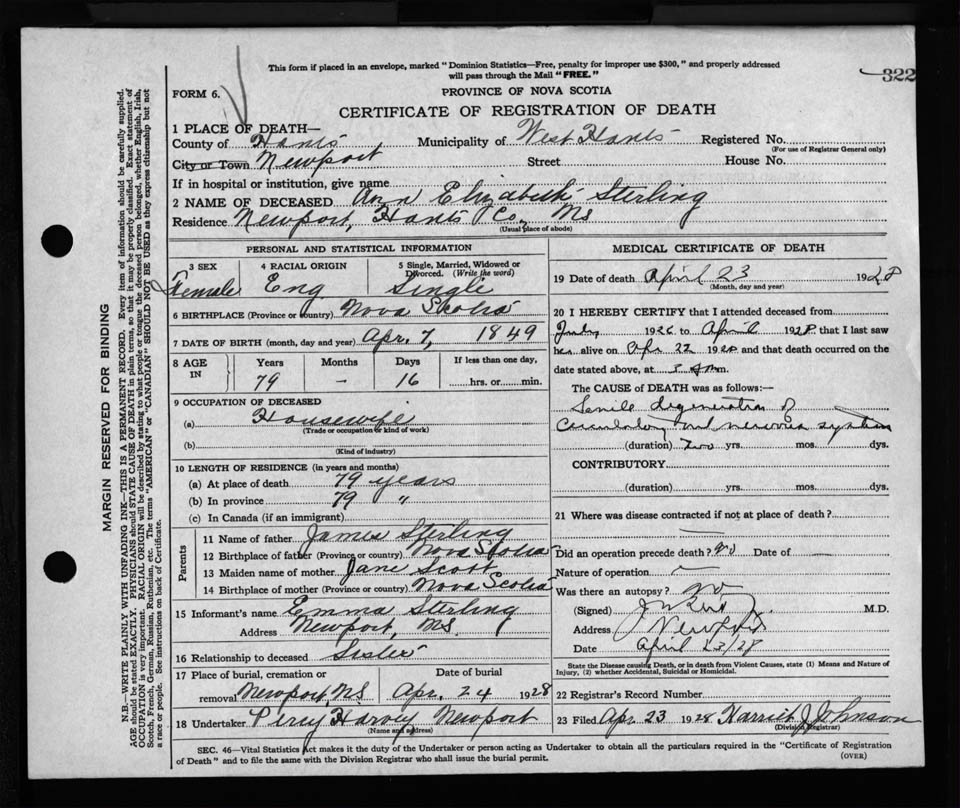 This form if placed in an envelope, marked "Dominion Statistics—Free, penalty for improper use $300," and properly addressed
will pass through the Mail "FREE."
322
FORM 6.
PROVINCE OF NOVA SCOTIA
CERTIFICATE OF REGISTRATION OF DEATH
1 PLACE OF DEATH—
County of Hants Municipality of West Hants Registered No.
(For use of Registrar General only)
City or Town Newport Street House No.
If in hospital or institution, give name
2 NAME OF DECEASED Ann Elizabeth Sterling
Residence Newport, Hants Co, NS
(Usual place of abode)
PERSONAL AND STATISTICAL INFORMATION
3 SEX 4 RACIAL ORIGIN 5 Single, Married, Widowed or Divorced. (Write the word)
Female Eng Single
6 BIRTHPLACE (Province or country) Nova Scotia
7 DATE OF BIRTH (month, day and year) Apr. 7, 1849
8 AGE IN Years Months Days If less than one day,
79 - 16 hrs. or min.
9 OCCUPATION OF DECEASED
(a) Housewife
(Trade or occupation or kind of work)
(b)
(Kind of industry)
10 LENGTH OF RESIDENCE (in years and months)
(a) At place of death 79 years
(b) In province 79 "
(c) In Canada (if an immigrant)
Parents
11 Name of father James Sterling
12 Birthplace of father (Province or country) Nova Scotia
13 Maiden name of mother Jane Scott
14 Birthplace of mother (Province or country) Nova Scotia
15 Informant's name Emma Sterling
Address Newport, NS.
16 Relationship to deceased Sister
17 Place of burial, cremation or Date of burial
removal Newport NS Apr. 24 1928
18 Undertaker Percy Harvey Newport
(Name and address)
MEDICAL CERTIFICATE OF DEATH
19 Date of death April 23 1928
(Month, day and year)
20 I HEREBY CERTIFY that I attended deceased from
July 1926 to April 1928 that I last saw
her alive on Apr 22 1928 and that death occurred on the
date stated above, at m.
The CAUSE of DEATH was as follows:—
Senile degeneration of
Circulatory and nervous system
(duration) Two yrs. mos. dys.
CONTRIBUTORY
(duration) yrs. mos. dys.
21 Where was disease contracted if not at place of death?
—
Did an operation precede death? no Date of —
Nature of operation —
Was there an autopsy? no
(Signed) M.D.
Address Newport
Date April 23/28
State the Disease causing Death, or in death from Violent Causes, state (1) Means and Nature of
Injury, (2) whether Accidental, Suicidal or Homicidal.
22 Registrar's Record Number
23 Filed Apr. 23 1928 Harriet J Johnson
(Division Registrar)
SEC. 46—Vital Statistics Act makes it the duty of the Undertaker or person acting as Undertaker to obtain all the particulars required in the "Certificate of Registration
of Death" and to file the same with the Division Registrar who shall issue the burial permit.
(OVER)
MARGIN RESERVED FOR BINDING
N.B.—WRITE PLAINLY WITH UNFADING INK—THIS IS A PERMANENT RECORD. Every item of information should be carefully supplied.
AGE should be stated EXACTLY. PHYSICIANS should STATE CAUSE OF DEATH in plain terms, so that it may be properly classified. Exact statement of
OCCUPATION is very important. RACIAL ORIGIN will be described by stating to what people or tongue the deceased person belonged, whether English, Irish,
Scotch, French, German, Russian, Ruthenian, etc. The terms "AMERICAN" or "CANADIAN" SHOULD NOT BE USED as they express citizenship but not
a race or people. See instructions on back of Certificate.